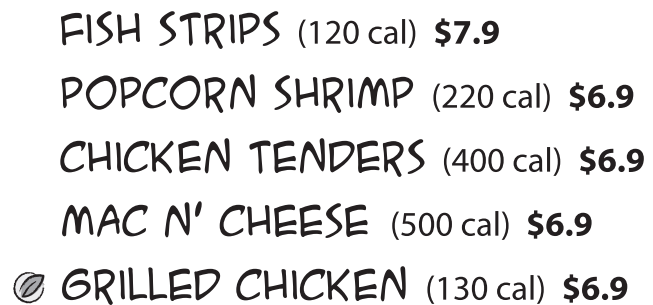 FISH STRIPS (120 cal) $7.9
POPCORN SHRIMP (220 cal) $6.9
CHICKEN TENDERS (400 cal) $6.9
MAC N' CHEESE (500 cal) $6.9
GRILLED CHICKEN (130 cal) $6.9